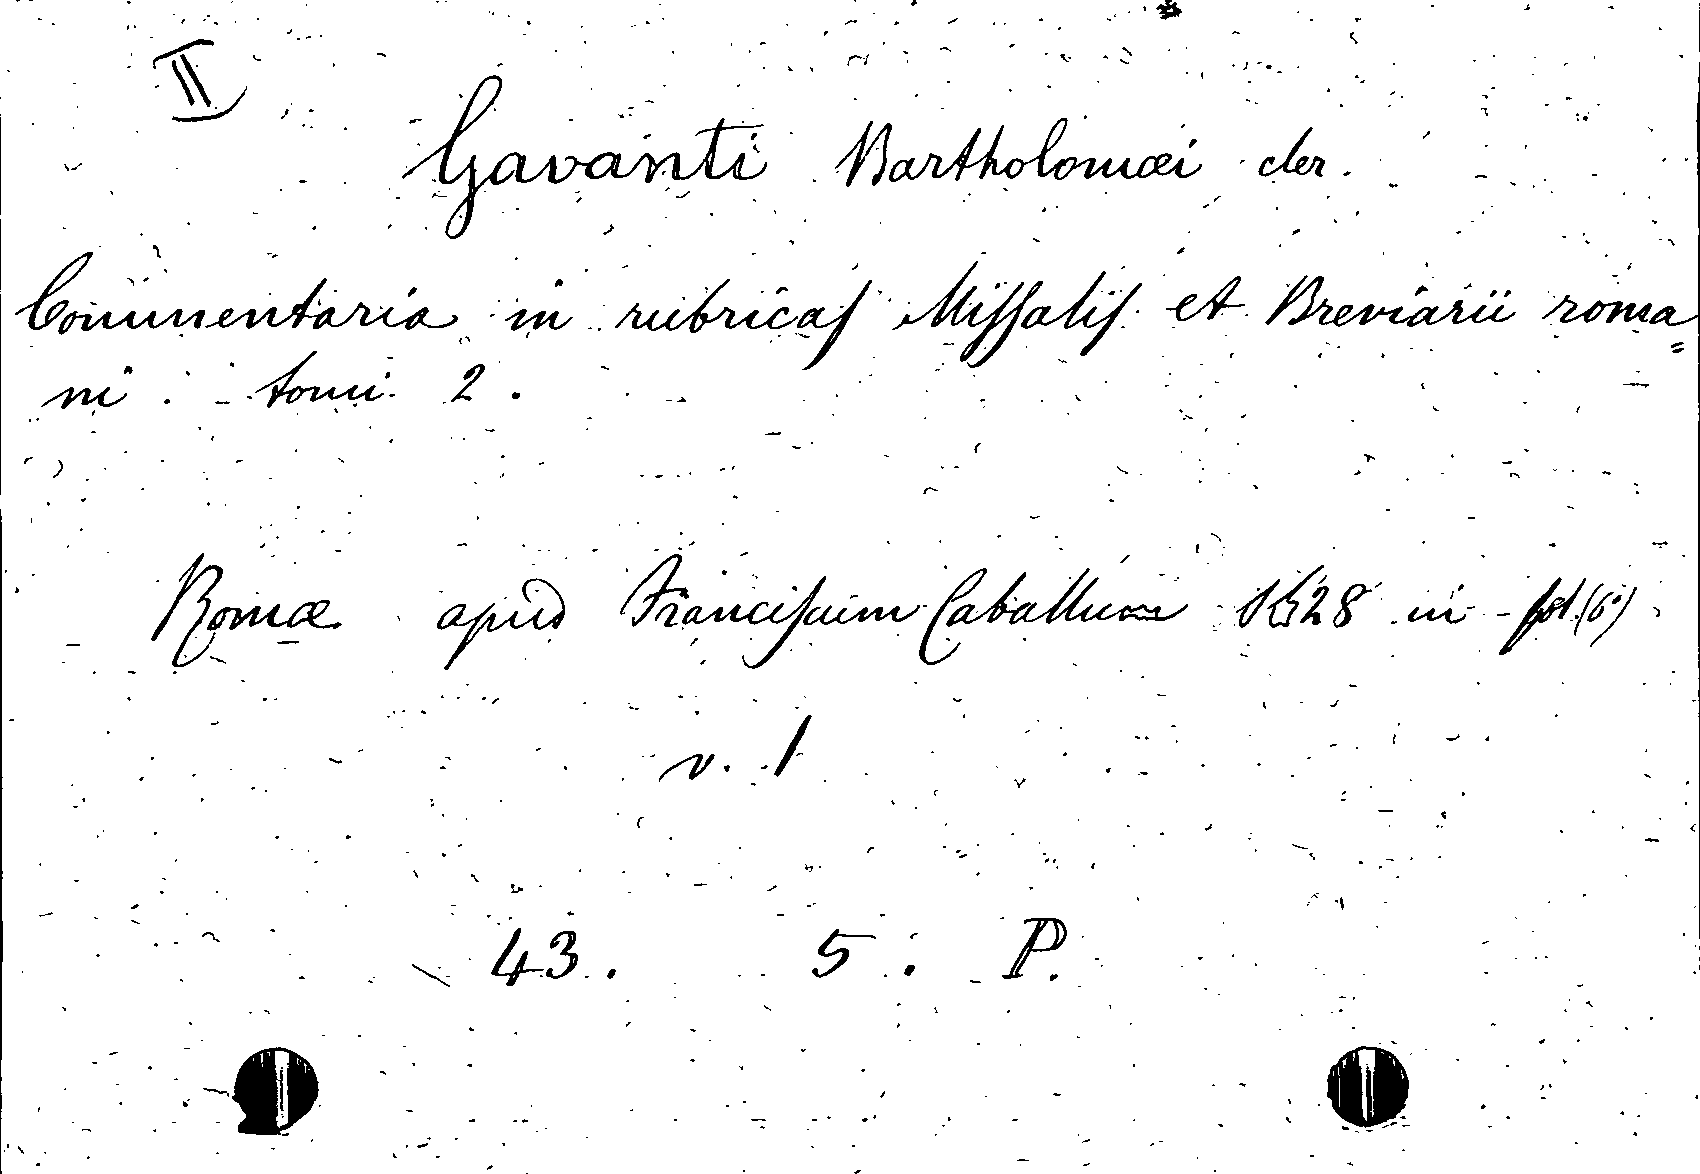 II
Gavanti Bartholomæi cler.
Commentaria in rubricas Missalis et Breviarii roma=
ni . tomi 2 .
Romæ apud Franciscum Caballum 1628 in fol. (6°)
v. 1
43. 5. P.